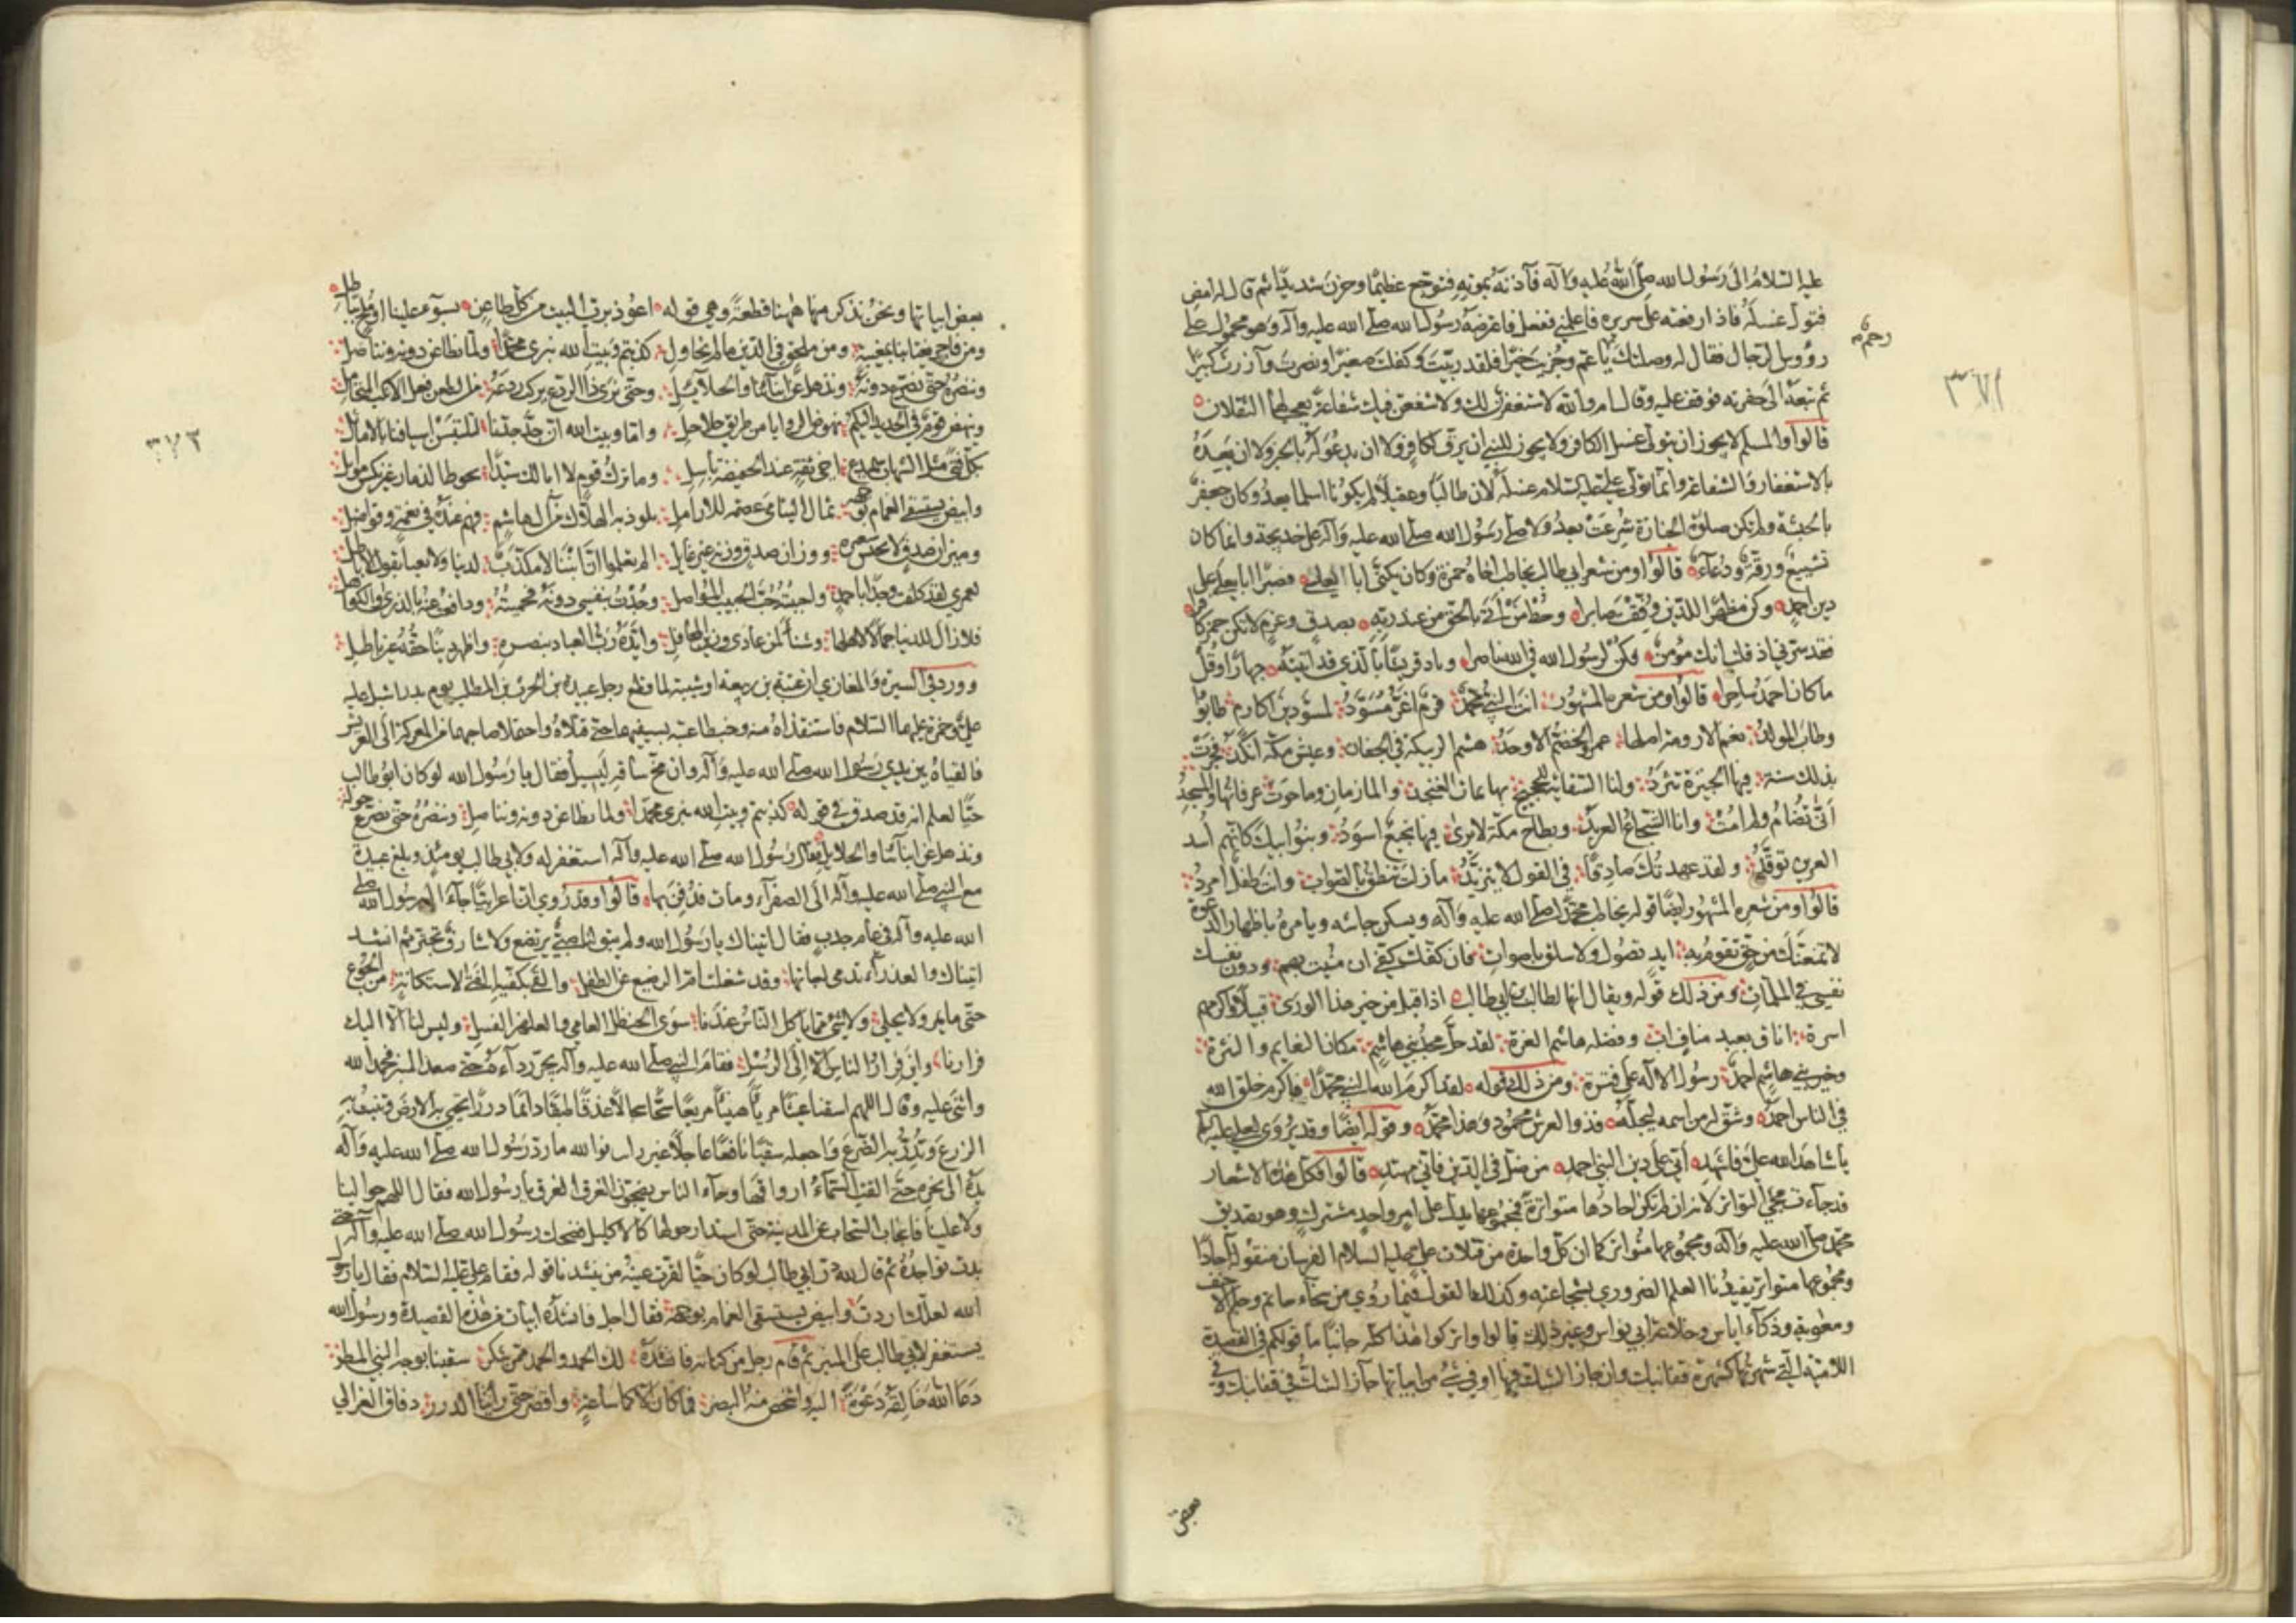 عليه السلام الى رسول الله صلى الله عليه وآله فآذنه بموته فتوجع عظيما وحزن شديدا ثم قال له امض
فتول غسله فاذا رفعته على سريره فاعلمني ففعل فاعترضه رسول الله صلى الله عليه وآله وهو محمول على
رؤوس الرجال فقال له وصلتك رحم يا عم وجزيت خيرا فلقد ربيت وكفلت صغيرا ونصرت وآزرت كبيرا
ثم تبعه الى حفرته فوقف عليه وقال اما والله لاستغفرن لك ولاشفعن فيك شفاعة يعجب لها الثقلان
قالوا والمسلم لا يجوز ان يتولى غسل الكافر ولا يجوز للنبي ان يرق لكافر ولا ان يدعو له بالخير ولا ان يعده
بالاستغفار والشفاعة وانما تولى علي عليه السلام غسله لان طالبا وعقيلا لم يكونا اسلما بعد وكان جعفر
بالحبشة ولم تكن صلوة الجنازة شرعت بعد ولا صلى رسول الله صلى الله عليه وآله على خديجة وانما كان
تشييع ورقة ودعاء قالوا ومن شعر ابي طالب يخاطب اخاه حمزة وكان يكنى ابا يعلى فصبرا ابا يعلى على
دين احمد وكن مظهرا للدين وفقت صابرا وحط من اتى بالحق من عند ربه بصدق وعزم لا تكن حمز كافرا
فقد سرني اذ قلت انك مؤمن فكن لرسول الله في الله ناصرا وباد قريشا بالذي قد اتيته جهارا وقل
ما كان احمد ساحرا قالوا ومن شعره المشهور انت النبي محمد قرم اغر مسود لمسودين اكارم طابوا
وطاب المولد نعم الارومة اصلها عمرو الخضم الاوحد هشم الربيكة في الجفان وعيش مكة انكد فجرت
بذلك سنة فيها الخبيزة تثرد ولنا السقاية للحجيج بها يماث العنجد والمازمان وما حوت عرفاتها والمسجد
انى تضام ولم امت وانا الشجاع العربد وبطاح مكة لا يرى فيها نجيع اسود وبنو ابيك كانهم اسد
العرين توقد ولقد عهدتك صادقا في القول لا يتزيد ما زلت تنطق بالصواب وانت طفل امرد
قالوا ومن شعره المشهور ايضا قوله يخاطب محمدا صلى الله عليه وآله ويسكن جاشه ويامره باظهار الدعوة
لا تمنعنك من حق تقوم به ايد تصول ولا سلق باصوات فان كفك كفي ان منيت بهم ودون نفسك
نفسي في الملمات ومن ذلك قوله ويقال انها لطالب بن ابي طالب اذا قيل من خير هذا الورى قبيلا واكرمهم
اسرة اناف بعبد مناف اب وفضله هاشم الغرة لقد حل مجد بني هاشم مكان النعايم والنثرة
وخير بني هاشم احمد رسول الاله على فترة ومن ذلك قوله لقد اكرم الله النبي محمدا فاكرم خلق الله
في الناس احمد وشق له من اسمه ليجله فذو العرش محمود وهذا محمد وقوله ايضا وقد يروى لعلي عليه السلام
يا شاهد الله علي فاشهد اني على دين النبي احمد من ضل في الدين فاني مهتد قالوا فكل هذه الاشعار
قد جاءت مجيء التواتر لانه ان لم تكن آحادها متواترة فمجموعها يدل على امر واحد مشترك وهو تصديق
محمد صلى الله عليه وآله ومجموعها متواتر كما ان كل واحدة من قتلات علي عليه السلام الفرسان منقولة آحادا
ومجموعها متواتر يفيدنا العلم الضروري بشجاعته وكذلك القول فيما روي من سخاء حاتم وحلم الاحنف
ومعوية وذكاء اياس وخلاعة ابي نواس وغير ذلك قالوا واتركوا هذا كله جانبا ما قولكم في القصيدة
اللامية التي شهرتها كشهرة قفا نبك وان جاز الشك فيها او في شيء من ابياتها جاز الشك في قفا نبك وفي
بعض
٣٧١
بعض ابياتها ونحن نذكر منها ههنا قطعة وهي قوله اعوذ برب البيت من كل طاعن بسوء علينا او ملح بباطل
ومن فاجر يغتابنا بمغيبة ومن ملحق في الدين ما لم نحاول كذبتم وبيت الله نبزى محمدا ولما نطاعن دونه ونناضل
وننصره حتى نصرع دونه ونذهل عن ابنائنا والحلائل وحتى نرى ذا الردع يركب ردعه من الطعن فعل الانكب المتحامل
وينهض قوم في الحديد اليكم نهوض الروايا من طريق جلاجل وانا وبيت الله ان جد جدنا لتلتبسن اسيافنا بالاماثل
بكل فتى مثل الشهاب سميدع اخي ثقة عند الحفيظة باسل وما ترك قوم لا ابا لك سيدا يحوط الذمار غير نكس موابل
وابيض يستسقى الغمام بوجهه ثمال اليتامى عصمة للارامل يلوذ به الهلاك من آل هاشم فهم عنده في نعمة وفواضل
وميزان صدق لا يخس شعيرة ووزان صدق وزنه غير عايل الم تعلموا ان ابننا لا مكذب لدينا ولا يعبا بقول الاباطل
لعمري لقد كلفت وجدا باحمد واحببته حب الحبيب المواصل وجدت بنفسي دونه فحميته ودافعت عنه بالذرى والكواهل
فلا زال للدنيا جمالا لاهلها وشينا لمن عادى وزين المحافل وايده رب العباد بنصره واظهر دينا حقه غير باطل
وورد في السيرة والمغازي ان عتبة بن ربيعة او شيبة لما قطع رجل عبيدة بن الحرث بن المطلب يوم بدر اشبل عليه
علي وحمزة عليهما السلام فاستنقذاه منه وخبطا عتبة بسيفيهما حتى قتلاه واحتملا صاحبهما من المعركة الى العريش
فالقياه بين يدي رسول الله صلى الله عليه وآله وان مخ ساقه ليسيل فقال يا رسول الله لو كان ابو طالب
حيا لعلم انه قد صدق في قوله كذبتم وبيت الله نبزى محمدا ولما نطاعن دونه ونناضل وننصره حتى نصرع حوله
ونذهل عن ابنائنا والحلايل فقال رسول الله صلى الله عليه وآله استغفر له ولابي طالب يومئذ وبلغ عبيدة
مع النبي صلى الله عليه وآله الى الصفراء ومات فدفن بها قالوا وقد روي ان اعرابيا جاء الى رسول الله صلى
الله عليه وآله في عام جدب فقال اتيناك يا رسول الله ولم يبق لنا صبي يرتضع ولا شارف تجتر ثم انشد
اتيناك والعذراء تدمى لبانها وقد شغلت ام الرضيع عن الطفل والقى بكفيه الفتى لاستكانة من الجوع
حتى ما يمر ولا يحلي ولا شيء مما ياكل الناس عندنا سوى الحنظل العامي والعلهز الفسل وليس لنا الا اليك
فرارنا واين فرار الناس الا الى الرسل فقام النبي صلى الله عليه وآله يجر رداءه حتى صعد المنبر فحمد الله
واثنى عليه وقال اللهم اسقنا غيثا مريئا هنيئا مريعا سحا سجالا غدقا طبقا دائما دررا تحيي به الارض وتنبت به
الزرع وتدر به الضرع واجعله سقيا نافعا عاجلا غير رائث فوالله ما رد رسول الله صلى الله عليه وآله
يده الى نحره حتى القت السماء ارواقها وجاء الناس يضجون الغرق الغرق يا رسول الله فقال اللهم حوالينا
ولا علينا فانجاب السحاب عن المدينة حتى استدار حولها كالاكليل فضحك رسول الله صلى الله عليه وآله حتى
بدت نواجذه ثم قال لله در ابي طالب لو كان حيا لقرت عينه من ينشدنا قوله فقام علي عليه السلام فقال يا رسول
الله لعلك اردت وابيض يستسقى الغمام بوجهه فقال اجل فانشده ابياتا من هذه القصيدة ورسول الله
يستغفر لابي طالب على المنبر ثم قام رجل من كنانة فانشده لك الحمد والحمد ممن شكر سقينا بوجه النبي المطر
دعا الله خالقه دعوة اليه واشخص منه البصر فما كان الا كما ساعة واقصر حتى راينا الدرر دفاق العزالي
٣٧٢